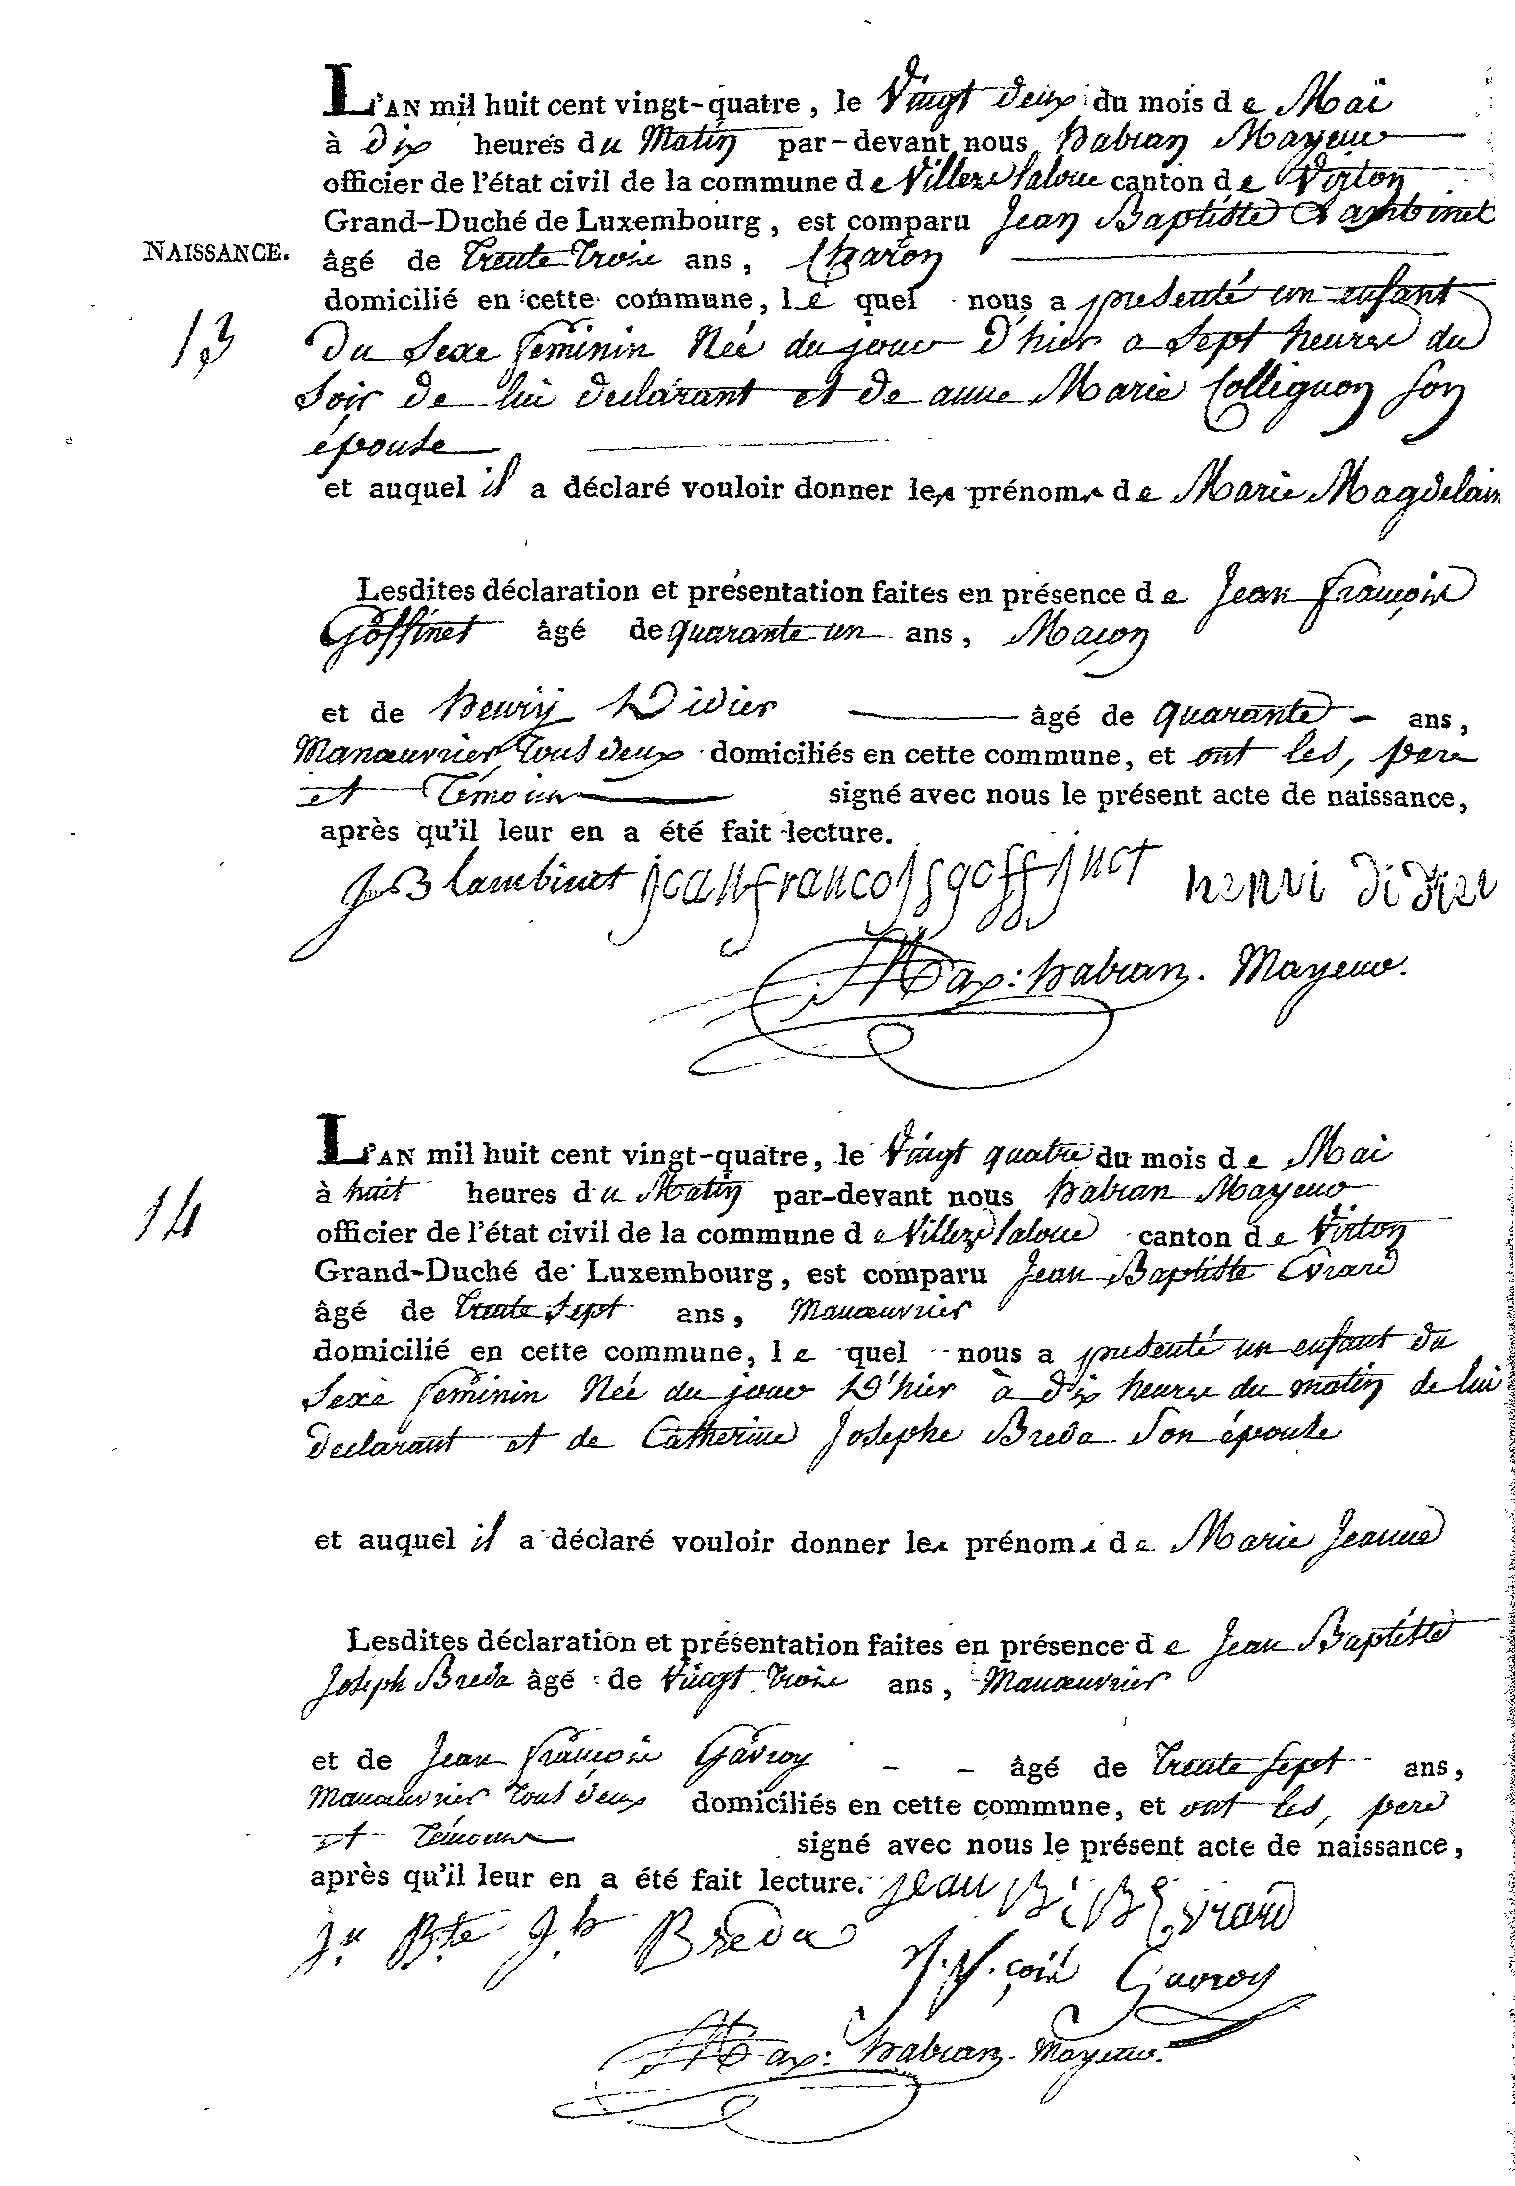 L'AN mil huit cent vingt-quatre, le Vingt deux du mois de Mai
à dix heures du Matin par-devant nous habran Mayeur
officier de l'état civil de la commune de Villez Laloue canton de Virton
Grand-Duché de Luxembourg, est comparu Jean Baptiste Lambinet
NAISSANCE.
âgé de Trente Trois ans, Charon
domicilié en cette commune, le quel nous a presenté un enfant
13
Du Sexe feminin Née du jour D'hier a Sept heures du
Soir de lui declarant et de anne Marie Collignon Son
épouse
et auquel il a déclaré vouloir donner les prénoms de Marie Magdelain
Lesdites déclaration et présentation faites en présence de Jean François
Goffinet âgé de quarante un ans, Maçon
et de henrij Didier âgé de quarante ans,
Manœuvrier Tous deux domiciliés en cette commune, et ont les, pere
et Témoins signé avec nous le présent acte de naissance,
après qu'il leur en a été fait lecture.
J B lambinet jean francois goffinet henri didier
Max: habran. Mayeur.
L'AN mil huit cent vingt-quatre, le Vingt quatre du mois de Mai
14
à huit heures du Matin par-devant nous habran Mayeur
officier de l'état civil de la commune de Villez Laloue canton de Virton
Grand-Duché de Luxembourg, est comparu Jean Baptiste Evrard
âgé de Trente Sept ans, Manœuvrier
domicilié en cette commune, le quel nous a presenté un enfant du
Sexe feminin Née du jour D'hier à dix heures du matin de lui
declarant et de Catherine Josephe Breda Son épouse
et auquel il a déclaré vouloir donner les prénoms de Marie Jeanne
Lesdites déclaration et présentation faites en présence de Jean Baptiste
Joseph Breda âgé de Vingt Trois ans, Manœuvrier
et de Jean François Gavroy âgé de Trente Sept ans,
Manœuvrier Tous deux domiciliés en cette commune, et ont les, pere
et Témoins signé avec nous le présent acte de naissance,
après qu'il leur en a été fait lecture. jean B
Evrard
Jn Bte Jh Breda
çois Gavroy
Max: habran. Mayeur.